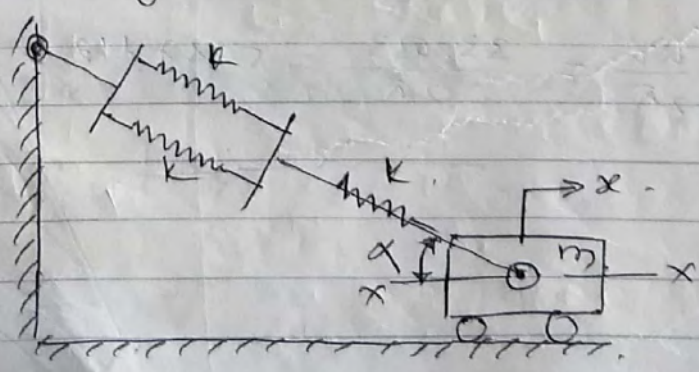 K
K
K
x
α
m
x
x